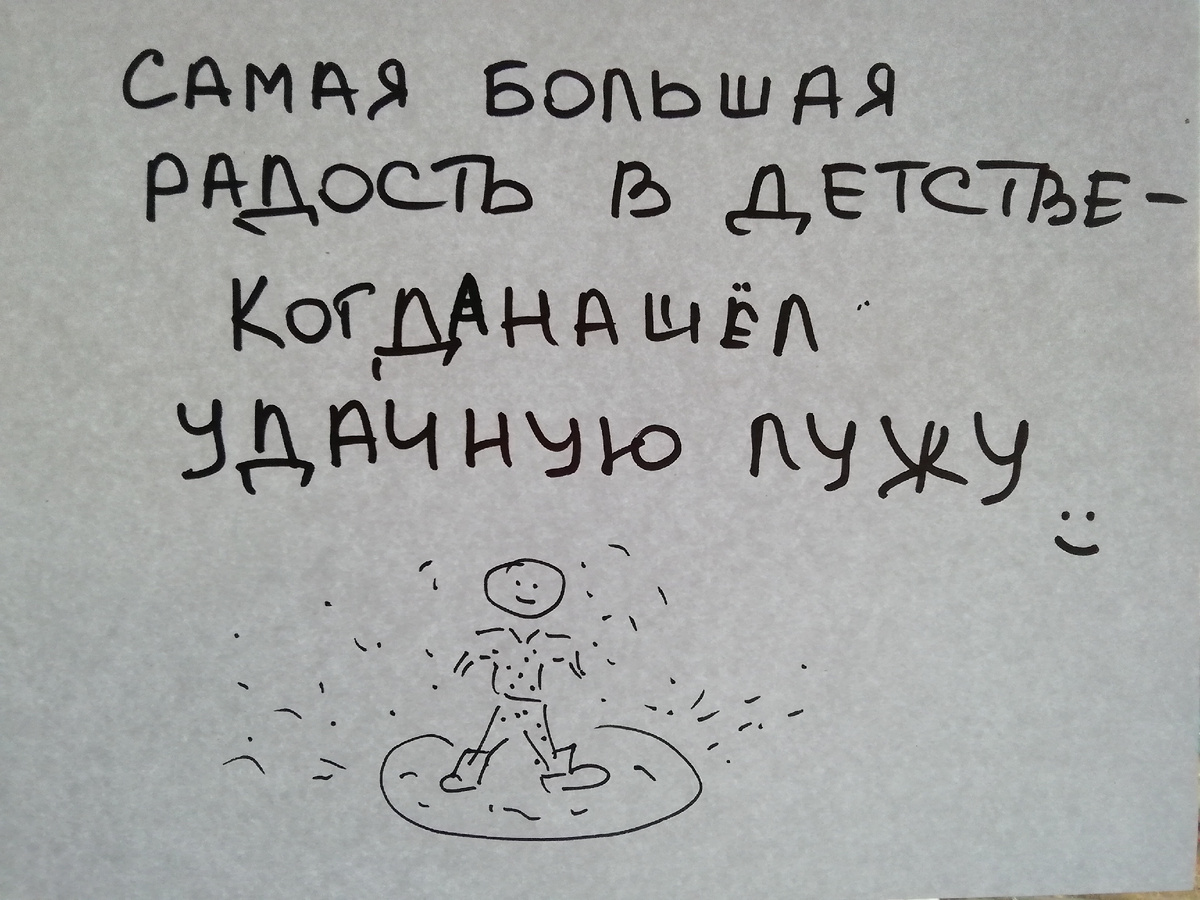 САМАЯ БОЛЬШАЯ
РАДОСТЬ В ДЕТСТВЕ-
КОГДАНАШЁЛ
УДАЧНУЮ ЛУЖУ